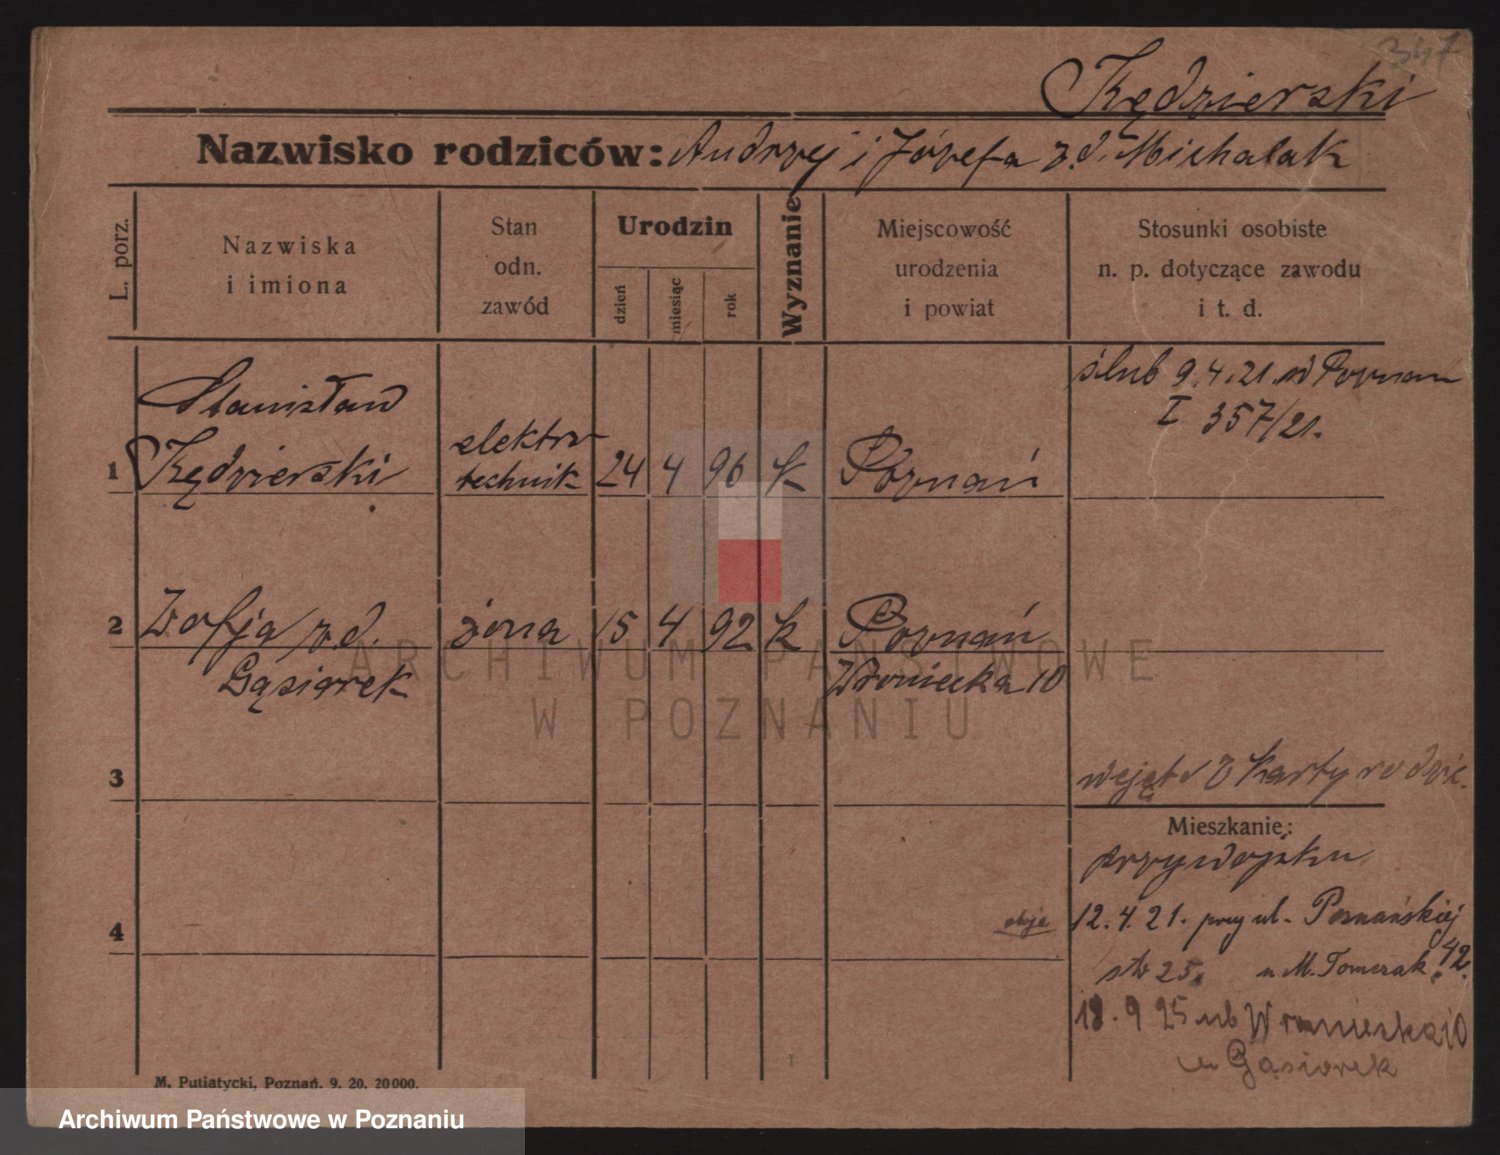 347
Kędzierski
Nazwisko rodziców: Andrzej i Józefa z.d. Michalak
L. porz.
Nazwiska
i imiona
Stan
odn.
zawód
Urodzin
dzień
miesiąc
rok
Wyznanie
Miejscowość
urodzenia
i powiat
Stosunki osobiste
n. p. dotyczące zawodu
i t. d.
ślub 9.4.21. w Poznan
I 357/21.
Stanisław
elektro
1 Kędzierski technik 24 4 96 k Poznań
2 Zofja z.d. żona 15 4 92 k Poznań
Gąsiorek Wroniecka 10
3
wzjęto z karty rodzic.
Mieszkanie:
przy wojsku
4
obje 12.4.21. przy ul. Poznańskiej
42.
str 25. u M. Tomczak
18.9 25 ul Wroniecka 10
u Gąsiorek
M. Putiatycki, Poznań. 9. 20. 20 000.
ARCHIWUM PAŃSTWOWE
W POZNANIU
Archiwum Państwowe w Poznaniu